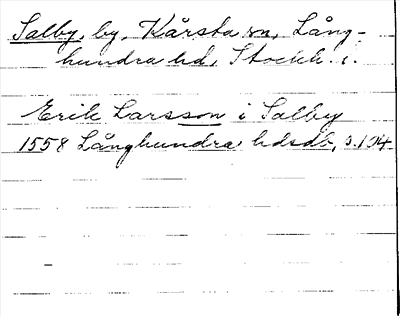 Salby, by, Kårsta sn, Lång-
hundra hd, Stockh. l.
Erik Larsson i Salby
1558 Långhundra hdsdb, s. 134.